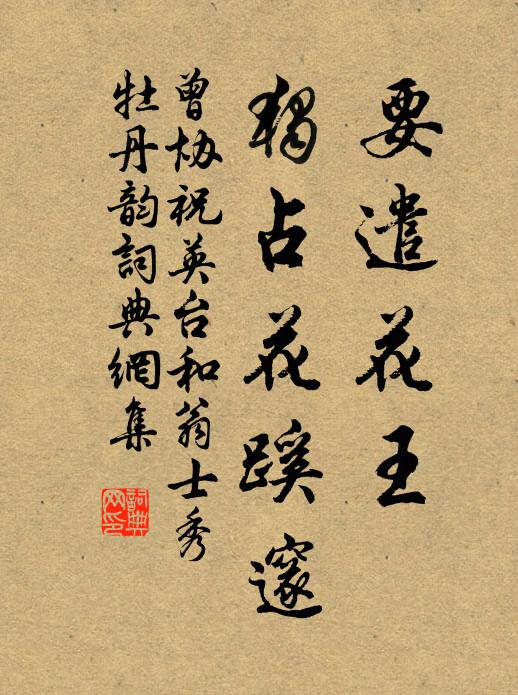 要遣花王
獨占花蹊邃
曾协祝英台和翁士秀
牡丹韵詞典網集
詞典網印